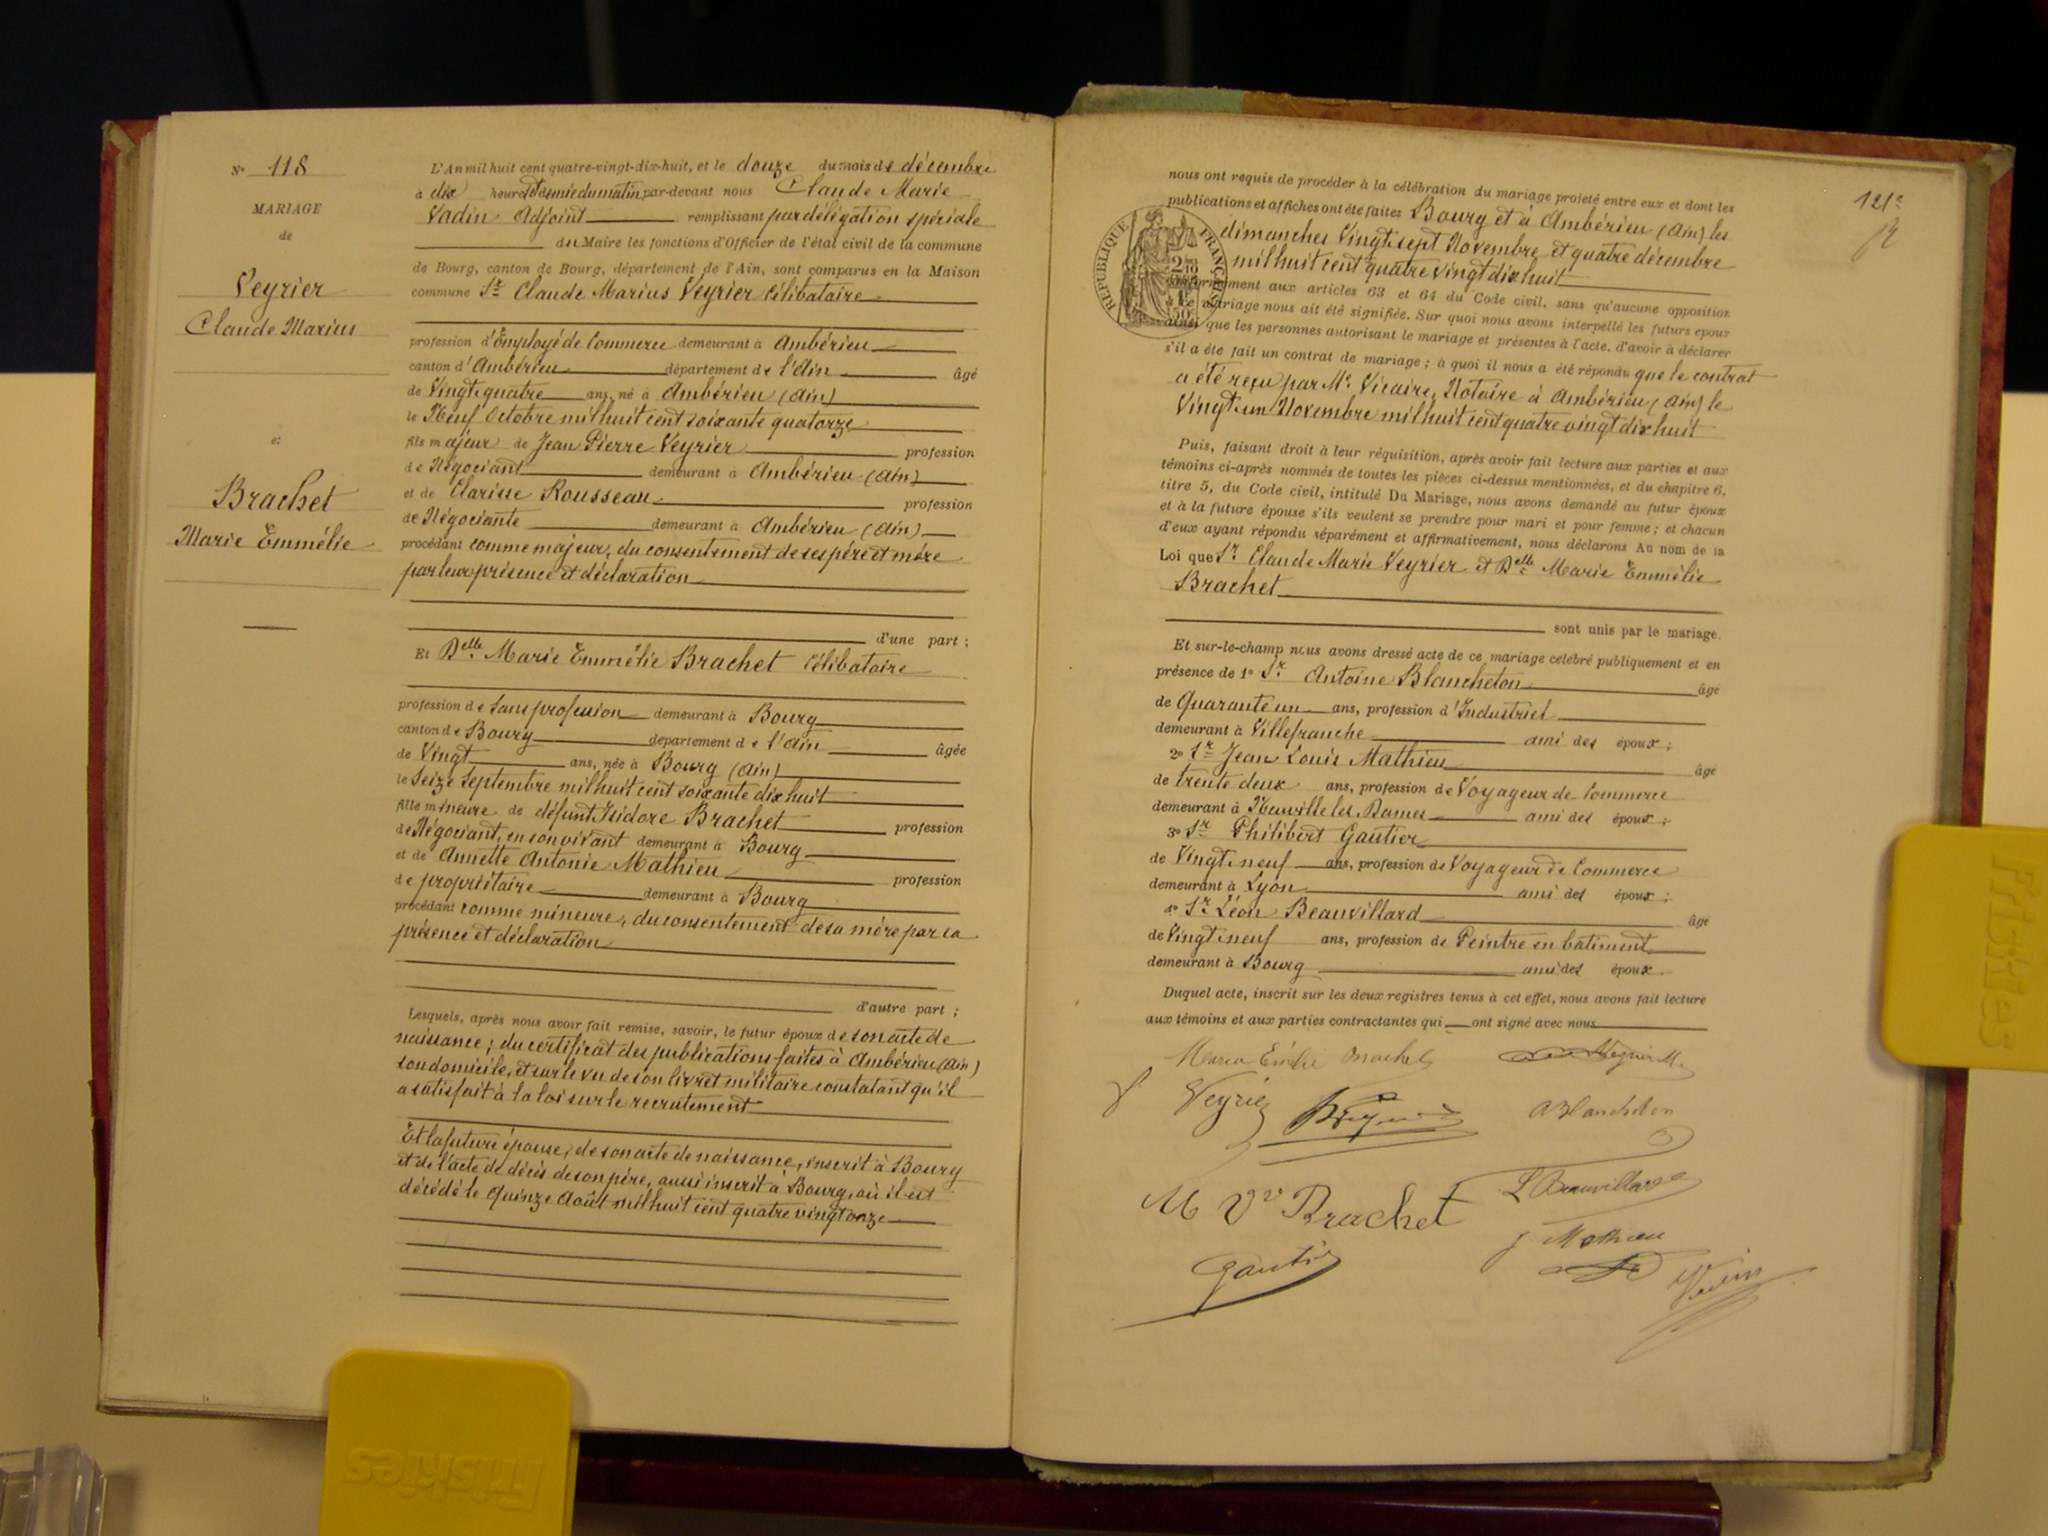 N° 118
MARIAGE
de
Veyrier
Claude Marius
et
Brachet
Marie Emmélie
L'An mil huit cent quatre-vingt-dix-huit, et le douze du mois de décembre
à dix heures et demie du matin, par-devant nous Claude Marie
Vadin Adjoint remplissant par délégation spéciale
du Maire les fonctions d'Officier de l'état civil de la commune
de Bourg, canton de Bourg, département de l'Ain, sont comparus en la Maison
commune Sr Claude Marius Veyrier célibataire
profession d'Employé de Commerce demeurant à Ambérieu
canton d'Ambérieu département de l'Ain âgé
de Vingt quatre ans, né à Ambérieu (Ain)
le Neuf Octobre mil huit cent soixante quatorze
fils majeur de Jean Pierre Veyrier profession
de Négociant demeurant à Ambérieu (Ain)
et de Clarisse Rousseau profession
de Négociante demeurant à Ambérieu (Ain)
procédant comme majeur, du consentement de ses père et mère
par leur présence et déclaration
d'une part ;
Et Delle Marie Emmélie Brachet célibataire
profession de sans profession demeurant à Bourg
canton de Bourg département de l'Ain âgée
de Vingt ans, née à Bourg (Ain)
le Seize Septembre mil huit cent soixante dix huit
fille mineure de défunt Isidore Brachet profession
de Négociant, en son vivant demeurant à Bourg
et de Annette Antonie Mathieu profession
de propriétaire demeurant à Bourg
procédant comme mineure, du consentement de sa mère par sa
présence et déclaration
d'autre part ;
Lesquels, après nous avoir fait remise, savoir, le futur époux de son acte de
naissance ; du certificat des publications faites à Ambérieu (Ain)
son domicile, et sur le vu de son livret militaire constatant qu'il
a satisfait à la loi sur le recrutement
Et la future épouse, de son acte de naissance, inscrit à Bourg
et de l'acte de décès de son père, aussi inscrit à Bourg, où il est
décédé le Quinze Août mil huit cent quatre vingt onze
121e
nous ont requis de procéder à la célébration du mariage projeté entre eux et dont les
publications et affiches ont été faites Bourg et à Ambérieu (Ain) les
dimanches Vingt sept Novembre et quatre décembre
mil huit cent quatre vingt dix huit
RÉPUBLIQUE FRANÇAISE
conformément aux articles 63 et 64 du Code civil, sans qu'aucune opposition
à ce mariage nous ait été signifiée. Sur quoi nous avons interpellé les futurs époux
ainsi que les personnes autorisant le mariage et présentes à l'acte, d'avoir à déclarer
s'il a été fait un contrat de mariage ; à quoi il nous a été répondu que le contrat
a été reçu par Me Vicaire, Notaire à Ambérieu (Ain) le
Vingt un Novembre mil huit cent quatre vingt dix huit
Puis, faisant droit à leur réquisition, après avoir fait lecture aux parties et aux
témoins ci-après nommés de toutes les pièces ci-dessus mentionnées, et du chapitre 6,
titre 5, du Code civil, intitulé Du Mariage, nous avons demandé au futur époux
et à la future épouse s'ils veulent se prendre pour mari et pour femme ; et chacun
d'eux ayant répondu séparément et affirmativement, nous déclarons Au nom de la
Loi que Sr Claude Marie Veyrier et Delle Marie Emmélie
Brachet
sont unis par le mariage.
Et sur-le-champ nous avons dressé acte de ce mariage célébré publiquement et en
présence de 1° Sr Antoine Blancheton âgé
de Quarante un ans, profession d'Industriel
demeurant à Villefranche ami des époux ;
2° Sr Jean Louis Mathieu âgé
de trente deux ans, profession de Voyageur de Commerce
demeurant à Neuville les Dames ami des époux ;
3° Sr Philibert Gautier
de Vingt neuf ans, profession de Voyageur de Commerce
demeurant à Lyon ami des époux ;
4° Sr Léon Beauvillard âgé
de Vingt neuf ans, profession de Peintre en bâtiment
demeurant à Bourg ami des époux.
Duquel acte, inscrit sur les deux registres tenus à cet effet, nous avons fait lecture
aux témoins et aux parties contractantes qui ont signé avec nous
Maria Emélie Brachet Veyrier M.
Veyrier ABlancheton
M Vve Brachet L Beauvillard
J Mathieu
Gautier Vadin
Friskies
Friskies